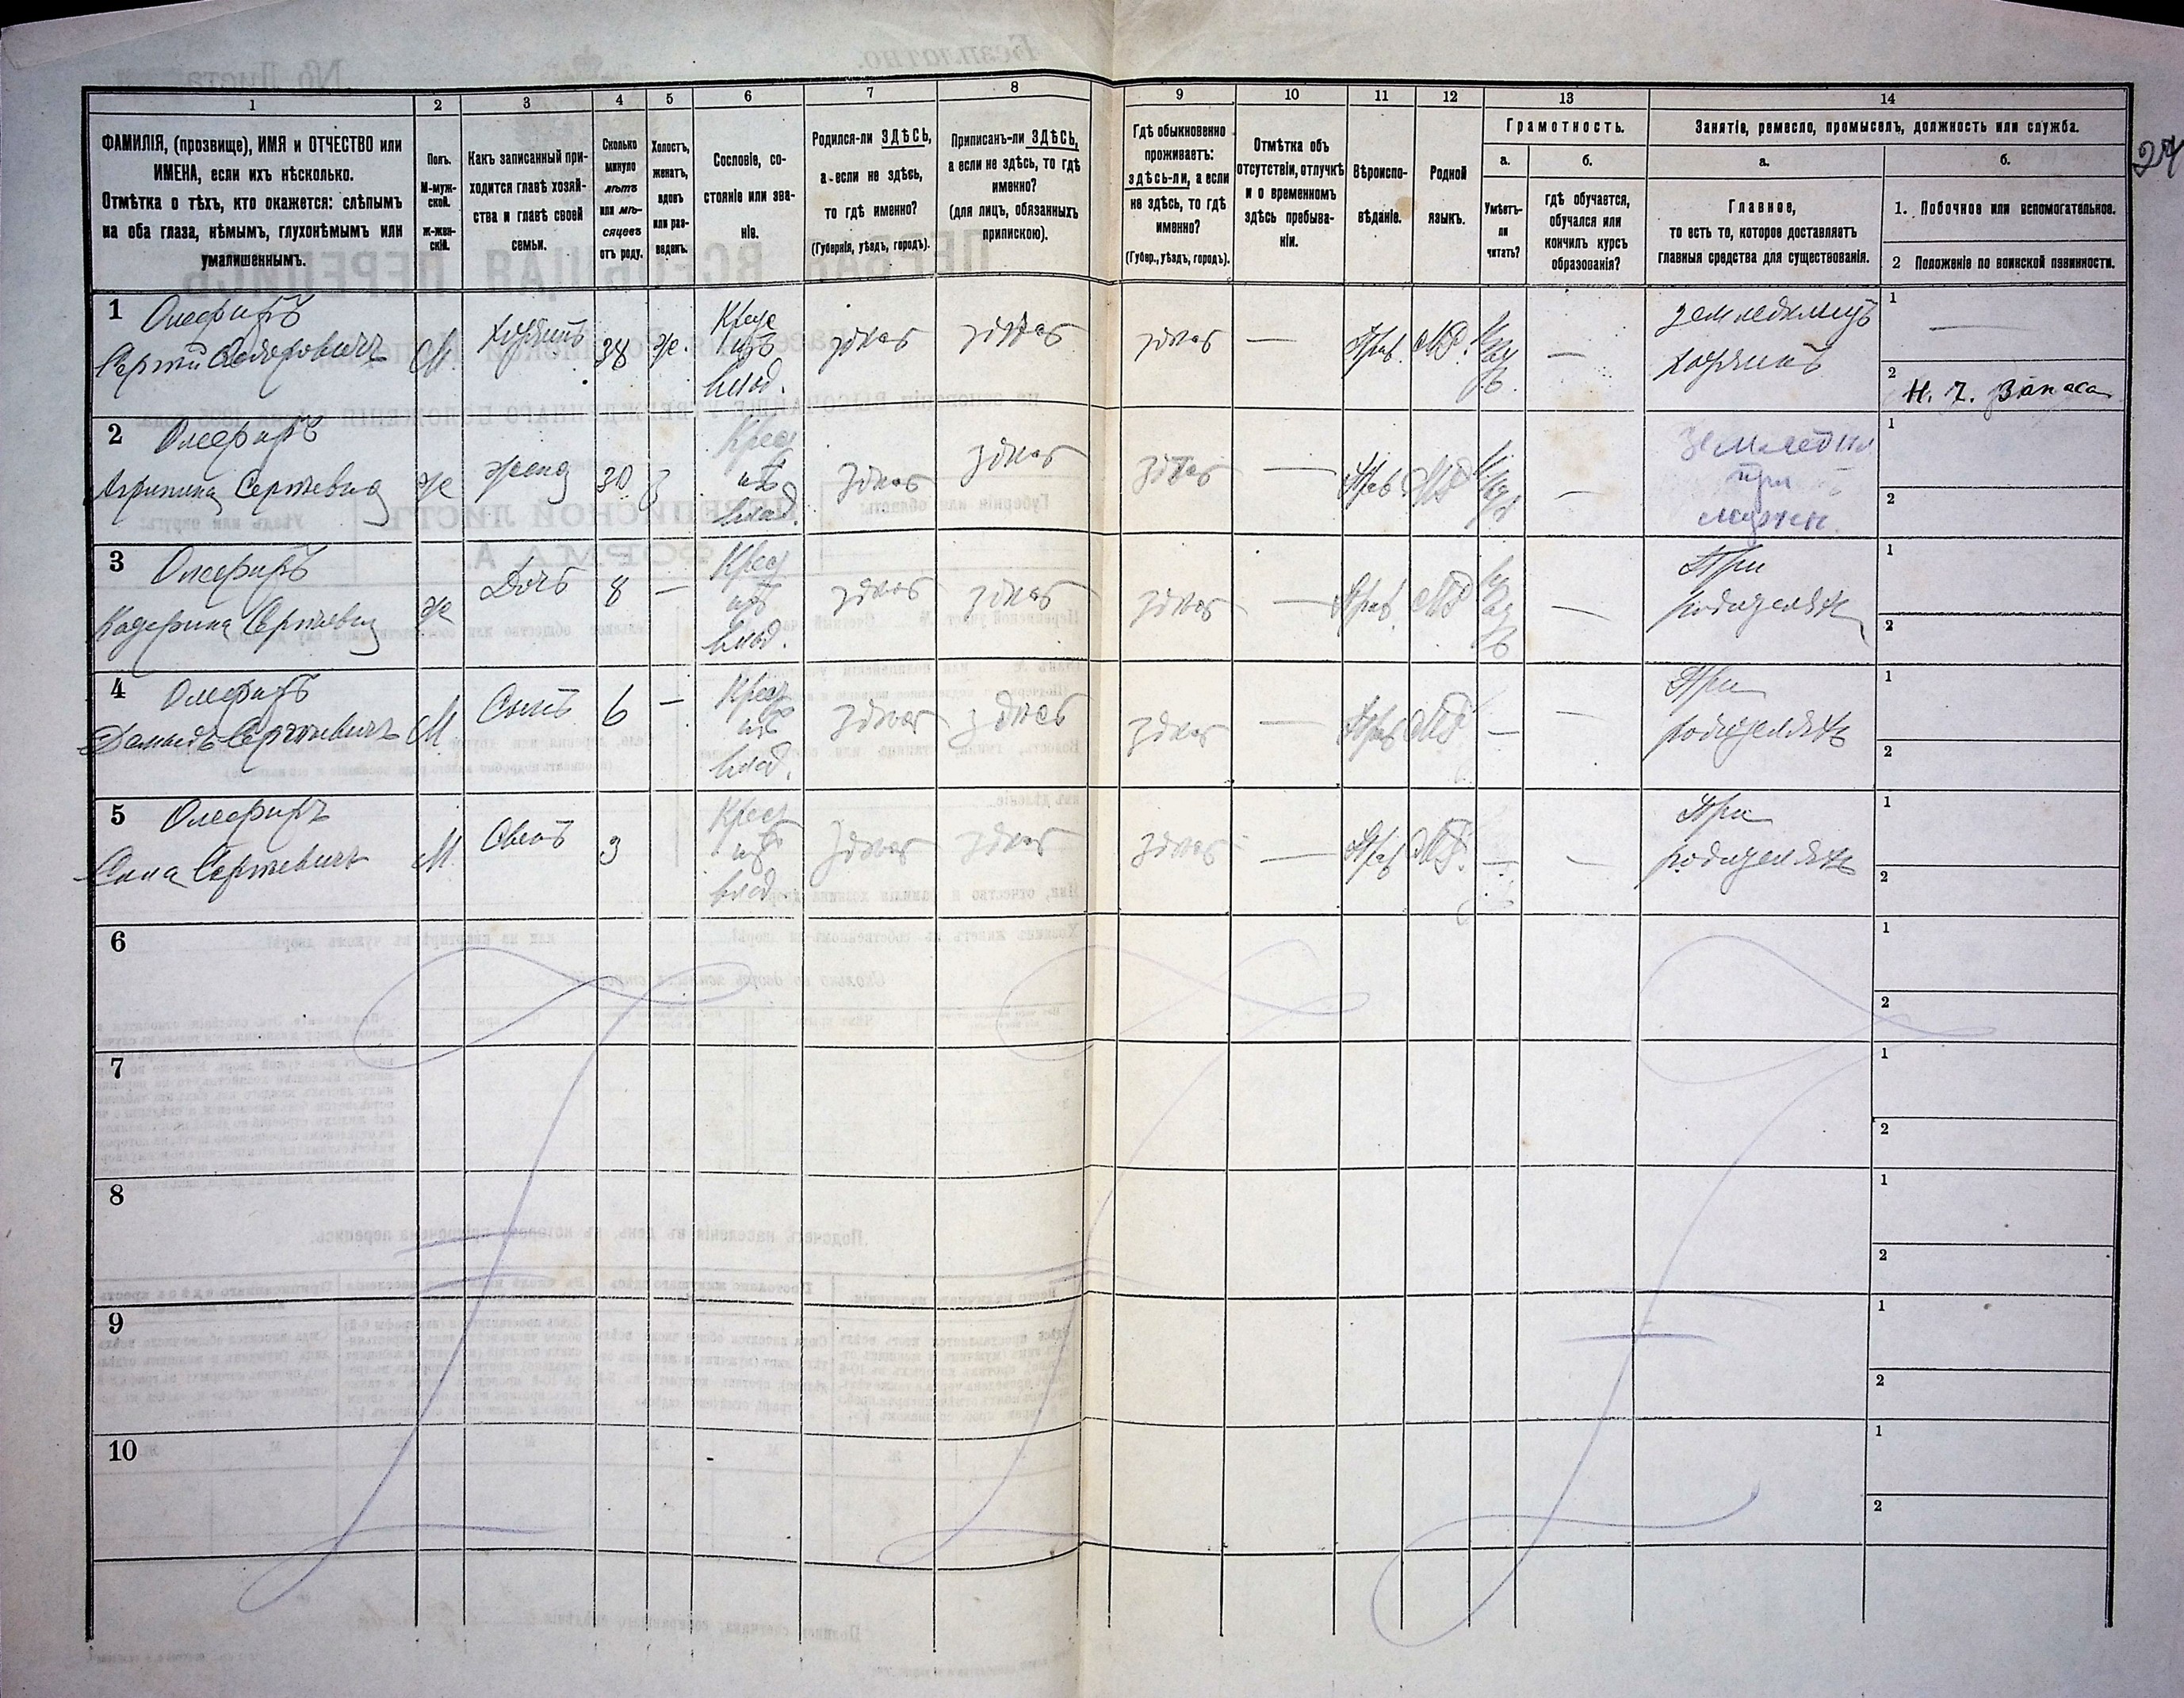 1 2 3 4 5 6 7 8 9 10 11 12 13 14
ФАМИЛІЯ, (прозвище), ИМЯ и ОТЧЕСТВО или
ИМЕНА, если ихъ нѣсколько.
Отмѣтка о тѣхъ, кто окажется: слѣпымъ
на оба глаза, нѣмымъ, глухонѣмымъ или
умалишеннымъ.
Полъ.
М-муж-
ской.
ж-жен-
скій.
Какъ записанный при-
ходится главѣ хозяй-
ства и главѣ своей
семьи.
Сколько
минуло
лѣтъ
или мѣ-
сяцевъ
отъ роду.
Холостъ,
женатъ,
вдовъ
или раз-
веденъ.
Сословіе, со-
стояніе или зва-
ніе.
Родился-ли ЗДѢСЬ,
а если не здѣсь,
то гдѣ именно?
(Губернія, уѣздъ, городъ).
Приписанъ-ли ЗДѢСЬ,
а если не здѣсь, то гдѣ
именно?
(для лицъ, обязанныхъ
припискою).
Гдѣ обыкновенно
проживаетъ:
здѣсь-ли, а если
не здѣсь, то гдѣ
именно?
(Губер., уѣздъ, городъ).
Отмѣтка объ
отсутствіи, отлучкѣ
и о временномъ
здѣсь пребыва-
ніи.
Вѣроиспо-
вѣданіе.
Родной
языкъ.
Грамотность.
а.
Умѣетъ-
ли
читать?
б.
гдѣ обучается,
обучался или
кончилъ курсъ
образованія?
Занятіе, ремесло, промыселъ, должность или служба.
а.
Главное,
то есть то, которое доставляетъ
главныя средства для существованія.
б.
1. Побочное или вспомогательное.
2 Положеніе по воинской повинности.
27
1 Олефиръ
Сергій М. Хозяинъ 38 ж.
Крес
изъ
влад.
здѣсь здѣсь здѣсь — Прав. —
земледѣлецъ
Хозяинъ
1 —
2 Н. Ч. Запаса
2 Олефиръ
Агрипина Сергѣевна ж жена 30 з
Крес
изъ
влад.
здѣсь здѣсь здѣсь — Прав —
Земледѣл
при
мужѣ.
1
2
3 Олефиръ
Катерина Сергѣевна ж Дочь 8 —
Крес
изъ
влад.
здѣсь здѣсь здѣсь — Прав. —
При
родителяхъ
1
2
4 Олефиръ
Демидъ Сергѣевичъ М Сынъ 6 —
Крес
изъ
влад.
здѣсь здѣсь здѣсь — Прав — —
При
родителяхъ
1
2
5 Олефиръ
Сергѣевичъ М Сынъ 3
Крес
изъ
влад.
здѣсь здѣсь здѣсь — Прав — —
При
родителяхъ
1
2
6
1
2
7
1
2
8
1
2
9
1
2
10
1
2